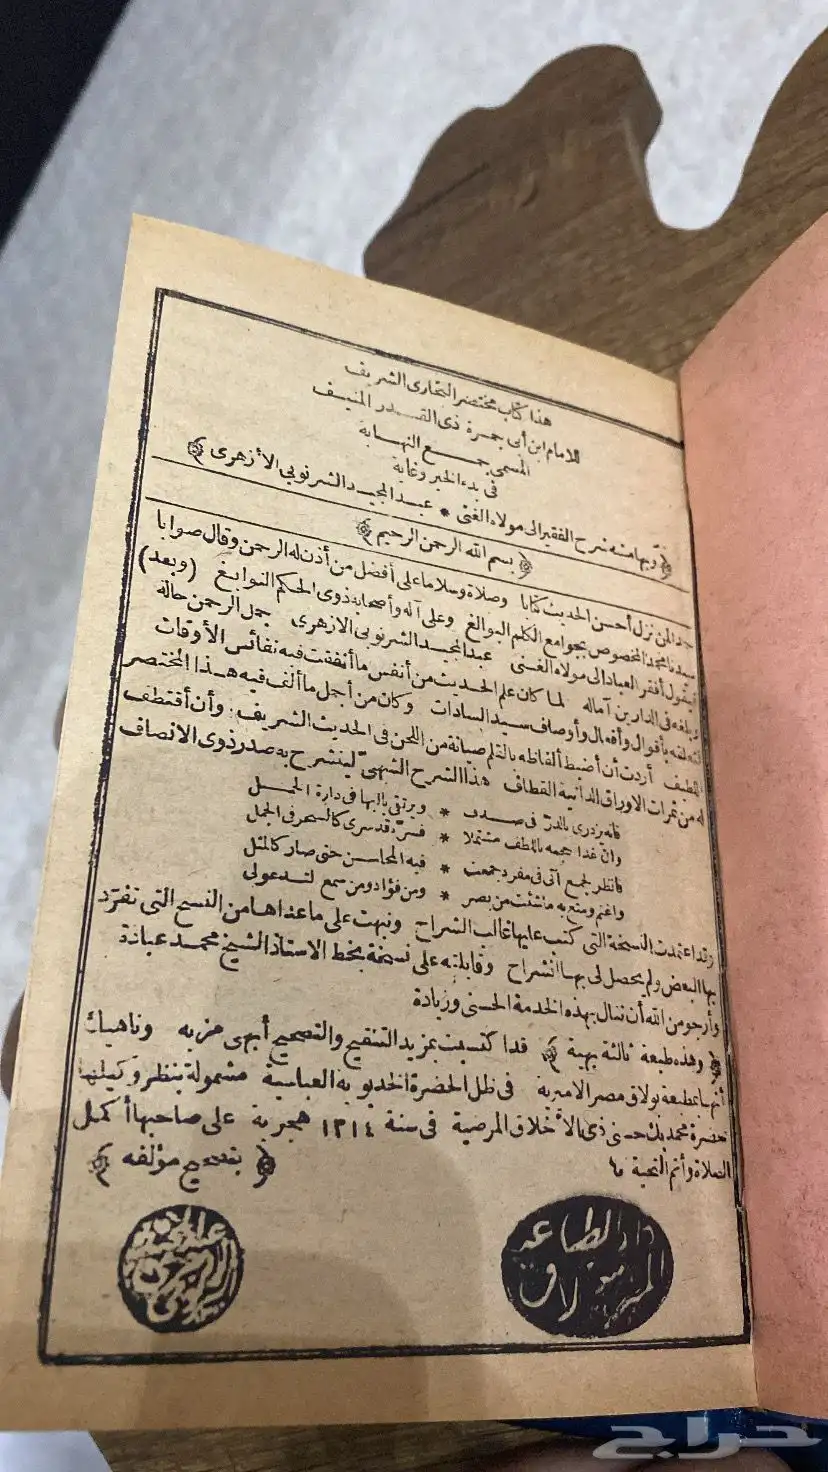 هذا كتاب مختصر البخارى الشريف
للامام ابن أبى جمرة ذى القدر المنيف
المسمى جمع النهاية
فى بدء الخير وغاية
﴿ وبهامشه شرح الفقير الى مولاه الغنى * عبد المجيد الشرنوبى الأزهرى ﴾
﴿ بسم الله الرحمن الرحيم ﴾
حمدا لمن نزل أحسن الحديث كتابا وصلاة وسلاما على أفضل من أذن له الرحمن وقال صوابا
سيدنا محمد المخصوص بجوامع الكلم البوالغ وعلى آله وأصحابه ذوى الحكم النوابغ (وبعد)
فيقول أفقر العباد الى مولاه الغنى عبد المجيد الشرنوبى الازهرى جمل الرحمن حاله
وبلغه فى الدارين آماله لما كان علم الحديث من أنفس ما أنفقت فيه نفائس الأوقات
لتعلقه بأقوال وأفعال وأوصاف سيد السادات وكان من أجل ما ألف فيه هذا المختصر
اللطيف أردت أن أضبط ألفاظه بالقلم صيانة من اللحن فى الحديث الشريف وأن أقتطف
له من ثمرات الاوراق الدانية القطاف هذا الشرح الشهى لينشرح به صدر ذوى الانصاف
فانه يزدرى بالدر فى صدف * ويرتقى بالبها فى دارة الحمل
وان غدا حجمه باللطف مشتملا * فسره قد سرى كالسحر فى الجمل
فانظر لجمع أتى فى مفرد جمعت * فيه المحاسن حتى صار كالمثل
واغنم ومتع به ماشئت من بصر * ومن فؤاد ومن سمع لتدعو لى
وقد اعتمدت النسخة التى كتب عليها غالب الشراح ونبهت على ما عداها من النسخ التى تفرد
بها البعض ولم يحصل لى بها انشراح وقابلته على نسخة بخط الاستاذ الشيخ محمد عبادة
وأرجو من الله أن ننال بهذه الخدمة الحسنى وزيادة
﴿ وهذه طبعة ثالثة بهية ﴾ قد اكتسبت بمزيد التنقيح والتصحيح أبهى مزيه وناهيك
أنها بمطبعة بولاق مصر الاميرية فى ظل الحضرة الخديوية العباسية مشمولة بنظر وكيلها
حضرة محمد بك حسنى ذى الأخلاق المرضية فى سنة ١٣١٤ هجرية على صاحبها أكمل
الصلاة وأتم التحية
﴿ بتصحيح مؤلفه ﴾
دار الطباعة
بولاق
حراج